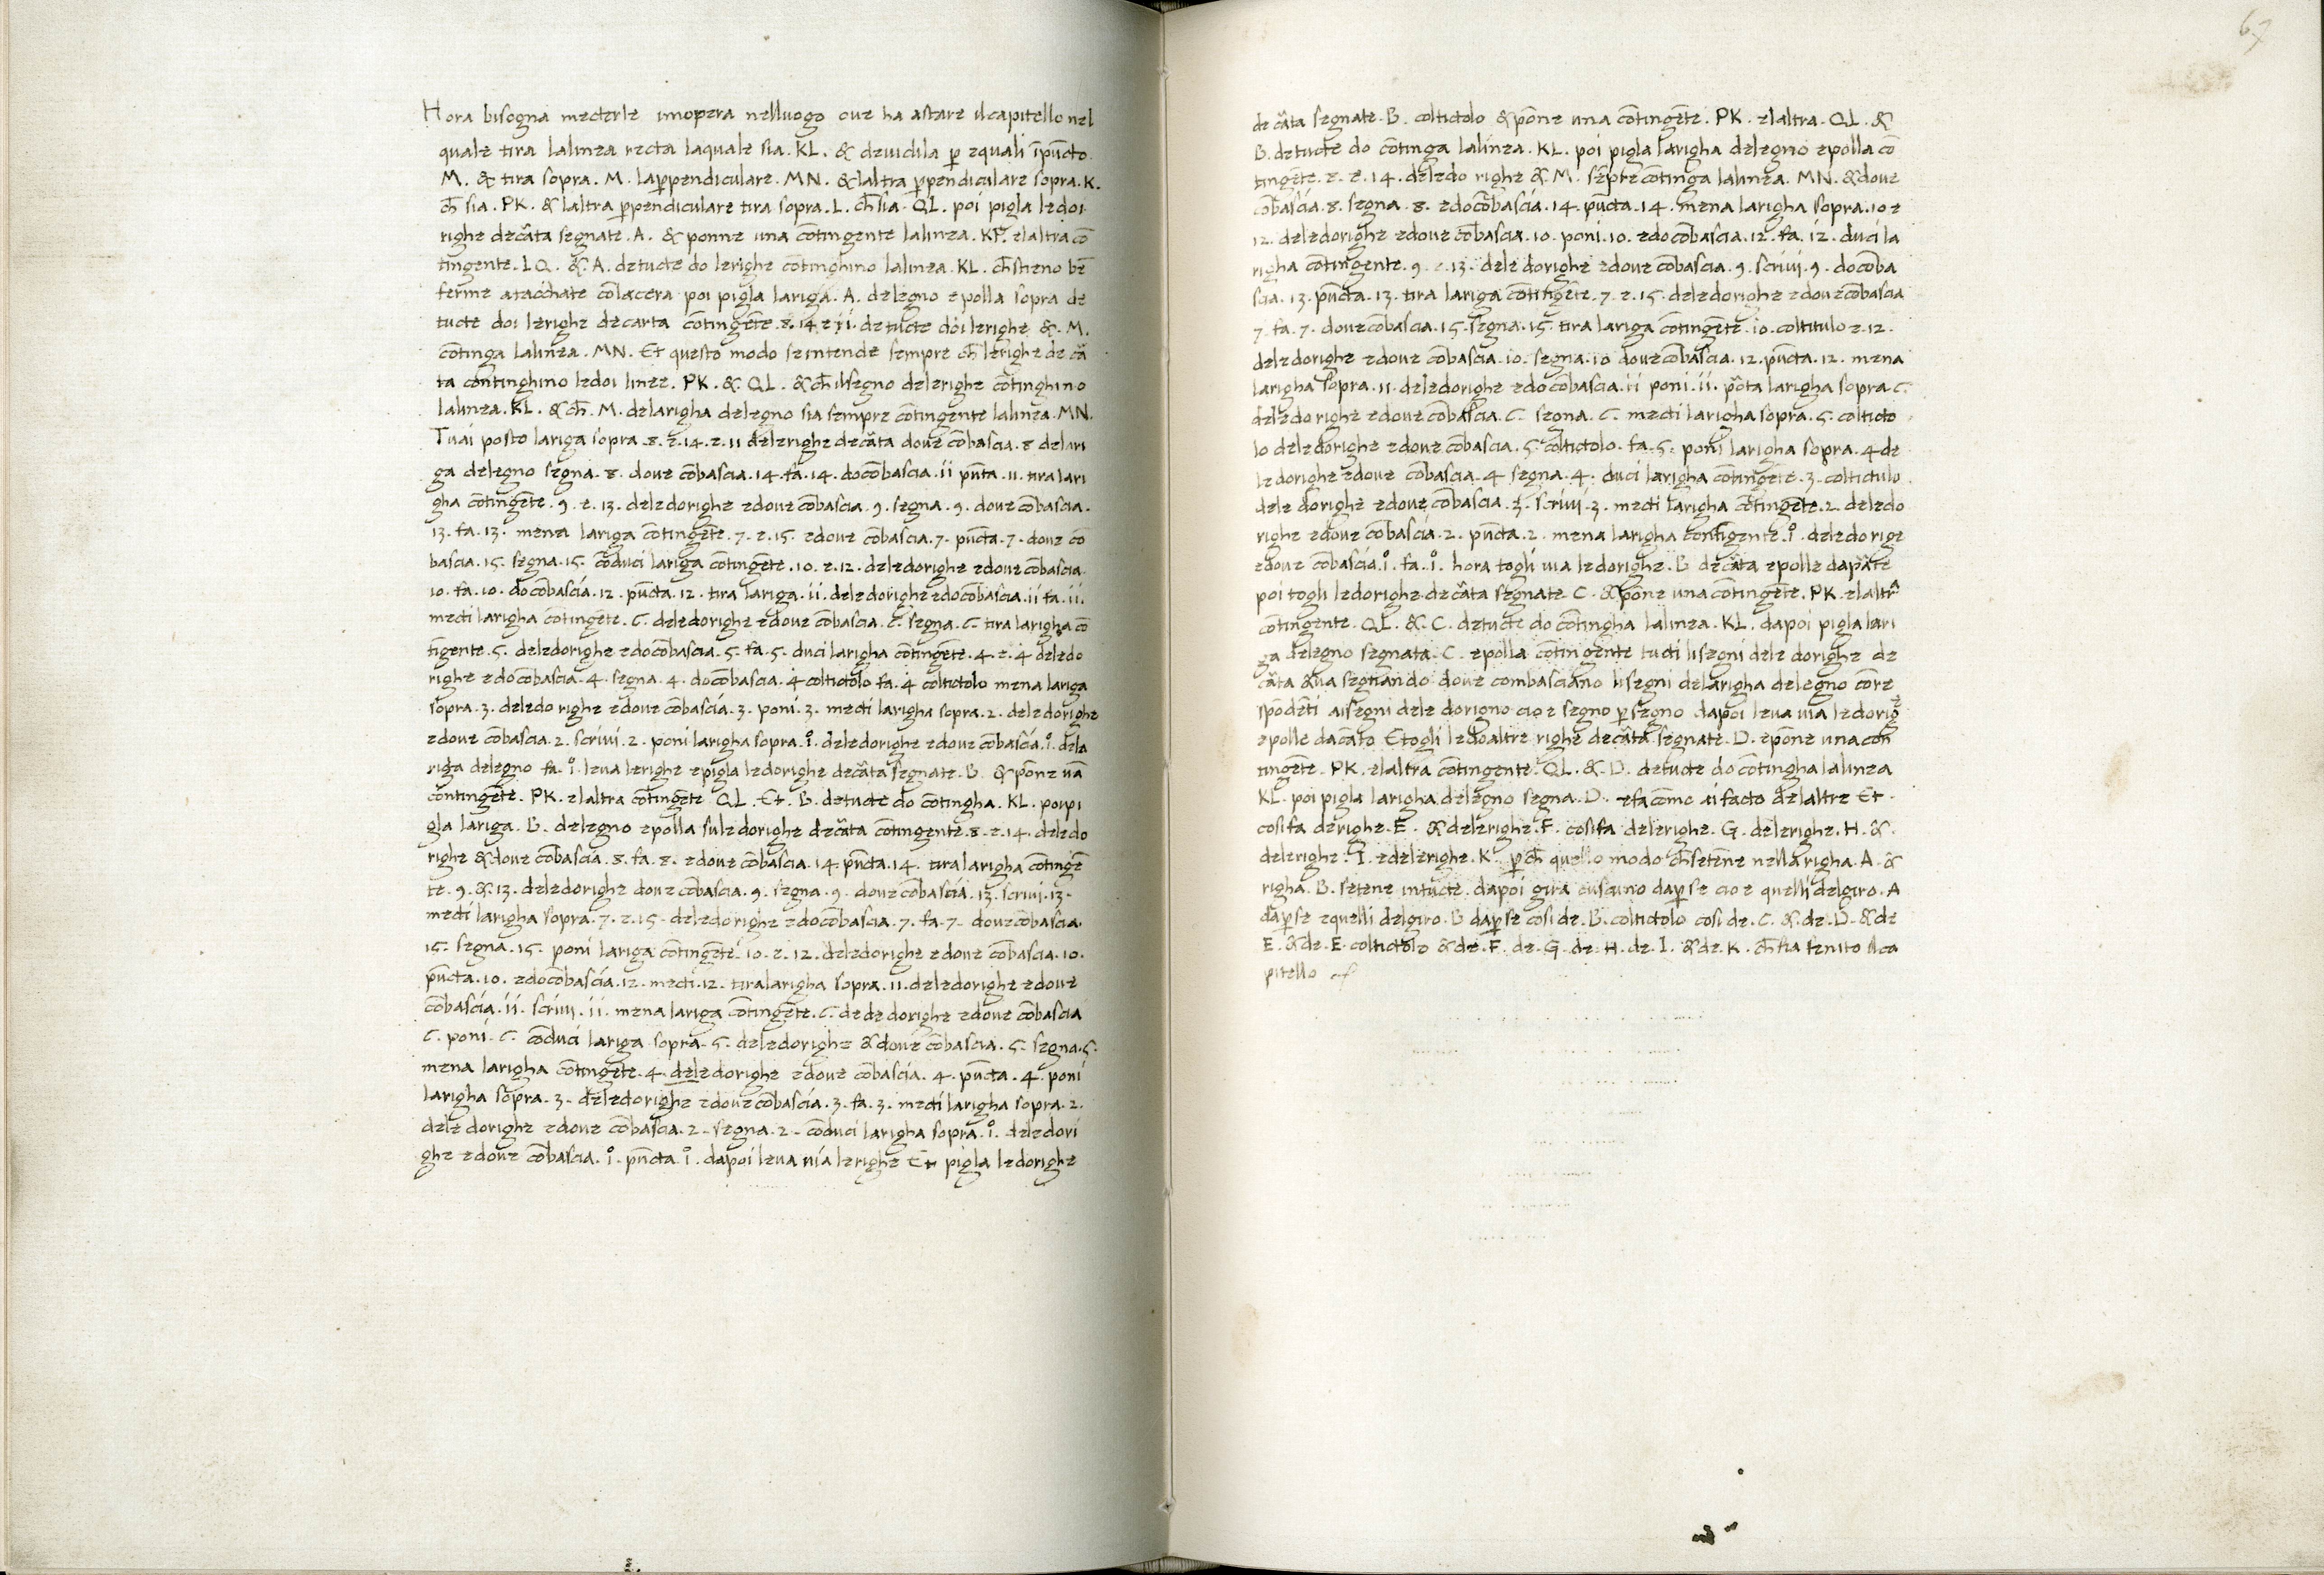 Hora bisogna mecterle inopera nelluogo oue ha astare ilcapitello nel
quale tira lalinea recta laquale sia .KL. & deuidila p̱ equali īpūcto
M. & tira sopra .M. lap̱pendiculare .MN. & laltra p̱pendiculare sopra .K.
ch̄ sia .PK. & laltra p̱pendiculare tira sopra .L. ch̄ sia .QL. poi pigla ledoi
righe decāta segnate .A. & ponne una cōtingente lalinea .KP. elaltra cō
tingente .LQ. & .A. detucte do lerighe cōtinghino lalinea .KL. ch̄ stieno bē
ferme atacchate cōlacera poi pigla lariga .A. delegno epolla sopra de
tucte doi lerighe decarta cōtingēte .8. 14 e 11. detucte doi lerighe & .M.
cōtinga lalinea .MN. Et questo modo seintende sempre ch̄ lerighe de cā
ta cōntinghino ledoi linee .PK. & .QL. & ch̄ ilsegno delerighe cōtinghino
lalinea .KL. & ch̄ .M. delarigha delegno sia sempre cōtingente lalinea .MN.
Tuai posto lariga sopra .8. e .14. e .11 delerighe decāta doue cōbascia .8 delari
ga delegno segna .8. doue cōbascia .14. fa .14. docōbascia .ii pūta .11. tira lari
gha cōtingēte .9. e .13. deledorighe edoue cōbascia .9. segna .9. doue cōbascia.
13. fa .13. mena lariga cōtingēte .7. e .15. edoue cōbascia .7. pūcta .7. doue cō
bascia .15. segna .15. cōduci lariga cōtingēte .10. e .12. deledorighe edoue cōbascia
10. fa .10. docōbascia .12. pūcta .12. tira lariga .ii. deledorighe edocōbascia .ii fa .ii.
mecti larigha cōtingēte .C. deledorighe edoue cōbascia .C. segna .C. tira larigha cō
tīgente .5. deledorighe edocōbascia .5. fa .5. duci larigha cōtingēte .4. e .4 deledo
righe edocōbascia .4. segna .4. docōbascia .4 coltictolo fa .4 coltictolo mena lariga
sopra .3. deledo righe edoue cōbascia .3. poni .3. mecti larigha sopra .2. deledorighe
edoue cōbascia .2. scriui .2. poni larigha sopra .i̊. deledorighe edoue cōbascia .i̊. dela
riga delegno fa .i̊. leua lerighe epigla ledorighe decāta segnate .B. & pōne uā
contingēte .PK. elaltra cōtingēte QL .Et. B. detucte do cōtingha .KL. poipi
gla lariga .B. delegno epolla suledorighe decāta cōtingente .8. e .14. deledo
righe & doue cōbascia .8. fa .8. edoue cōbascia .14 pūcta .14. tira larigha cōtingē
te .9. & .13. deledorighe doue cōbascia .9. segna .9. doue cōbascia .13. scriui .13.
mecti larigha sopra .7. e .15. deledorighe edocōbascia .7. fa .7. doue cōbascia.
15. segna .15. poni lariga cōtingēte .10. e .12. deledorighe edoue cōbascia .10.
pūcta .10. edocōbascia .12. mecti .12. tiralarigha sopra .11. deledorighe edoue
cōbascia .ii. scriui .ii. mena lariga cōtingēte .C. dede dorighe edoue cōbascia
C. poni .C. cōduci lariga sopra .5. deledorighe & doue cōbascia .5. segna .5.
mena larigha cōtingēte .4. deledorighe edoue cōbascia .4. pūcta .4. poni
larigha sopra .3. deledorighe edoue cōbascia .3. fa .3. mecti larigha sopra .2.
dele dorighe edoue cōbascia .2. segna .2. cōduci larigha sopra .i̊. deledori
ghe edoue cōbascia .i̊. pūcta .i̊. dapoi leua uia lerighe Et pigla ledorighe
67
de cāta segnate .B. coltictolo & pōne una cōtingēte .PK. elaltra .QL. &
B. detucte do cōtinga lalinea .KL. poi pigla larigha delegno epolla cō
tingēte .2. e .14. deledo righe & .M. sēpre cōtinga lalinea .MN. & doue
cōbascia .8. segna .8. edocōbascia .14. pūcta .14. mena larigha sopra .10 e
12. deledorighe edoue cōbascia .10. poni .10. edocōbascia .12. fa .12. duci la
righa cōtingente .9. e .13. dele dorighe edoue cōbascia .9. scriui .9. docōba
scia .13. pūcta .13. tira lariga cōtingēte .7. e .15. deledorighe edoue cōbascia
7. fa .7. doue cōbascia .15. segna .15. tira lariga cōtingēte .10. coltitulo e .12.
deledorighe edoue cōbascia .10. segna .10 doue cōbascia .12. pūcta .12. mena
larigha sopra .11. deledorighe edocōbascia .ii poni .ii. pōta larigha sopra .C.
deledo righe edoue cōbascia .C. segna .C. mecti larigha sopra .5. colticto
lo deledorighe edoue cōbascia .5. coltictolo .fa .5. poni larigha sopra .4 de
ledorighe edoue cōbascia .4 segna .4. duci larigha cōtingēte .3. coltictulo.
dele dorighe edoue cōbascia .3. scriui .3. mecti larigha cōtingēte .2. deledo
righe edoue cōbascia .2. pūcta .2. mena larigha contīgente .i̊. deledorige
edoue cōbascia .i̊. fa .i̊. hora togli uia ledorighe .B decāta epolle dapāte
poi togli ledorighe decāta segnate C. & pōne una cōtingēte .PK. elaltra
cōtingente .QL. & .C. detucte do cōtingha lalinea .KL. dapoi pigla lari
ga delegno segnata .C. epolla cōtingente tucti lisegni dele dorighe de
cāta & ua segnando doue combasciano lisegni delarigha delegno core
spōdēti aisegni dele dorigno cioe segno p̱ segno dapoi leua uia ledorighe
epolle dacāto Etogli ledoaltre righe decāta segnate .D. epōne una con
tingēte .PK. elaltra cōtingente .QL. & .D. detucte do cōtingha lalinea
KL. poi pigla larigha delegno segna .D. efa cōmo ai facto delaltre Et.
cosifa derighe .E. & delerighe .F. cosifa delerighe .G. delerighe .H. &.
delerighe .I. edelerighe .K. p̱ch̄ quello modo ch̄ setēne nella righa .A. &
righa .B. setene intucte. dapoi gira ciascuno dap̱ se cioe quelli delgiro .A
dap̱se equelli delgiro .B dap̱se cosi de .B. coltictolo cosi de .C. & de .D. & de
E. & de .E. coltictolo & de .F. de .G. de .H. de .I. & de .K. ch̄ fia fenito ilca
pitello